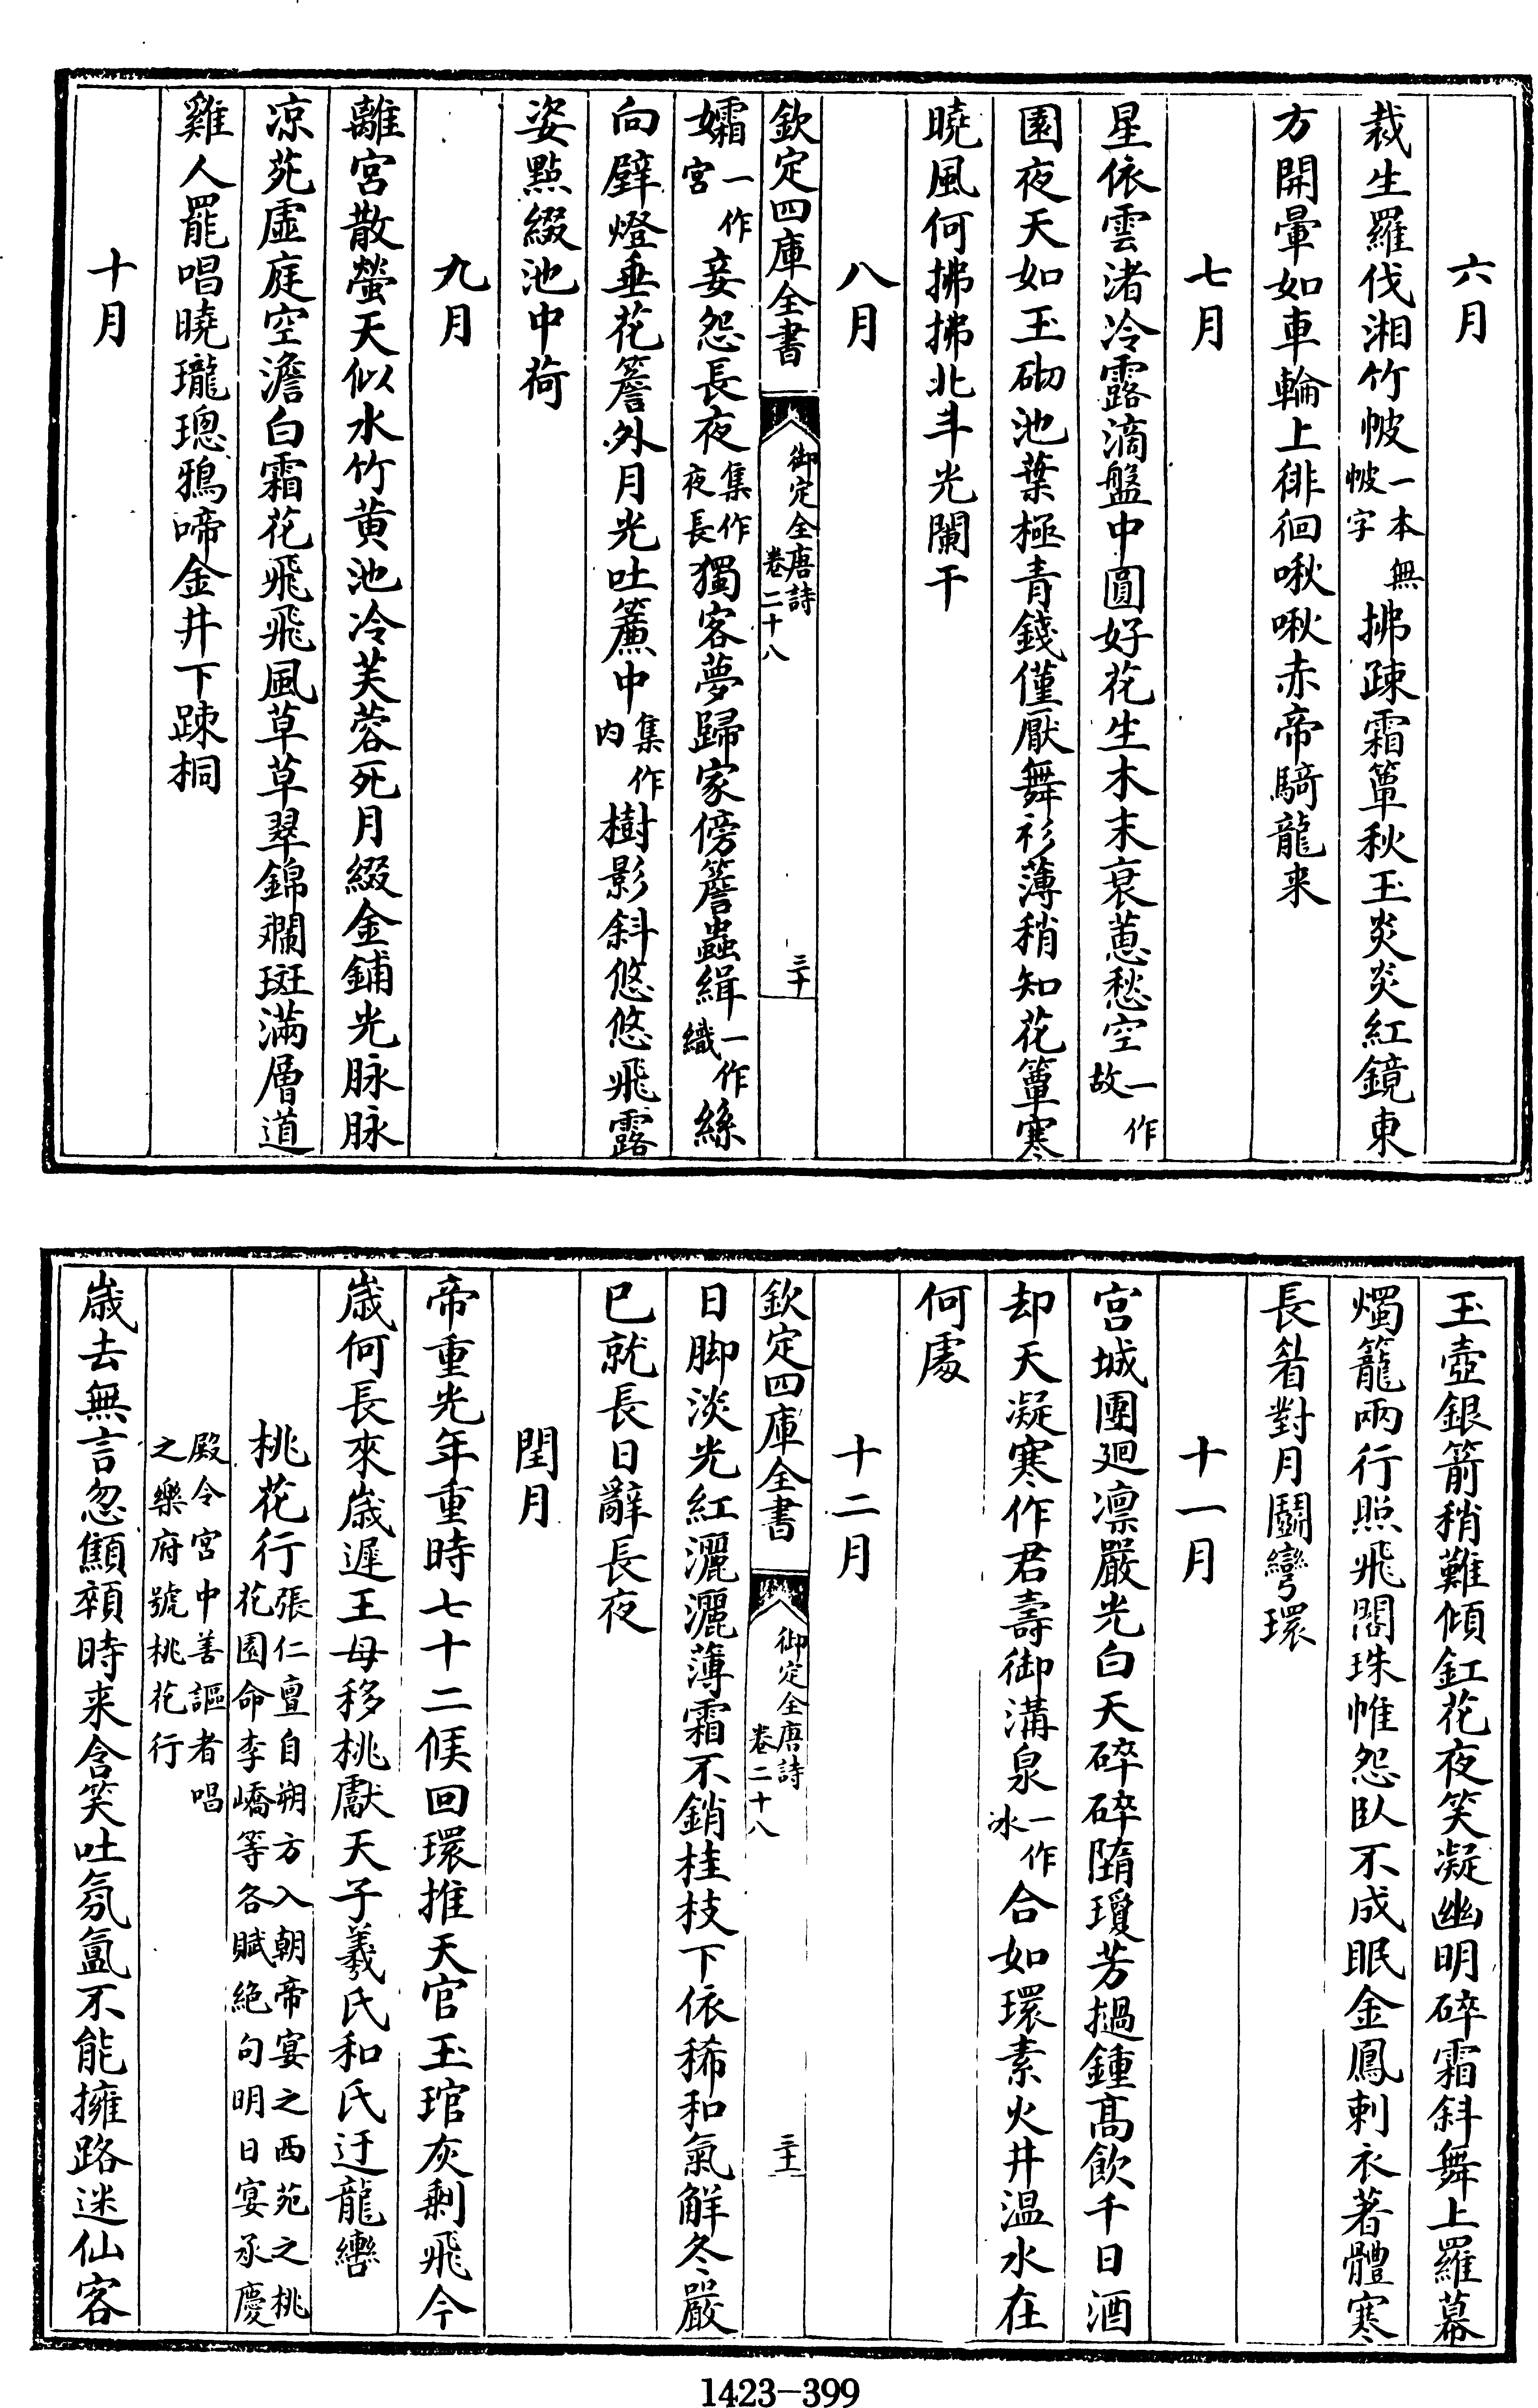 六月
裁生羅伐湘竹帔一本無帔字拂疎霜簟秋玉炎炎紅鏡東
方開暈如車輪上徘徊啾啾赤帝騎龍来
七月
星依雲渚冷露滴盤中圓好花生木末衰蕙愁空一作故
園夜天如玉砌池葉極青錢僅厭舞衫薄稍知花簟寒
曉風何拂拂北斗光闌干
八月
欽定四庫全書
御定全唐詩
卷二十八
三十
孀一作宮妾怨長夜集作夜長獨客夢歸家傍簷蟲緝一作織絲
向壁燈垂花簷外月光吐簾中集作内樹影斜悠悠飛露
姿點綴池中荷
九月
離宮散螢天似水竹黄池冷芙蓉死月綴金鋪光脉脉
凉苑虚庭空澹白霜花飛飛風草草翠錦斕斑滿層道
雞人罷唱曉瓏璁鴉啼金井下疎桐
十月
玉壺銀箭稍難傾釭花夜笑凝幽明碎霜斜舞上羅幕
燭籠兩行照飛閣珠帷怨臥不成眠金鳳刺衣著體寒
長眉對月鬭彎環
十一月
宫城團廻凛嚴光白天碎碎墮瓊芳撾鍾髙飲千日酒
却天凝寒作君壽御溝泉一作冰合如環素火井温水在
何處
十二月
欽定四庫全書
御定全唐詩
卷二十八
三十一
日脚淡光紅灑灑薄霜不銷桂枝下依稀和氣解冬嚴
已就長日辭長夜
閏月
帝重光年重時七十二候回環推天官玉琯灰剰飛今
歳何長來歳遲王母移桃獻天子羲氏和氏迂龍轡
桃花行張仁亶自朔方入朝帝宴之西苑之桃
花園命李嶠等各賦絶句明日宴承慶
殿令宫中善謳者唱
之樂府號桃花行
歳去無言忽顦顇時来含笑吐氛氲不能擁路迷仙客
1423-399